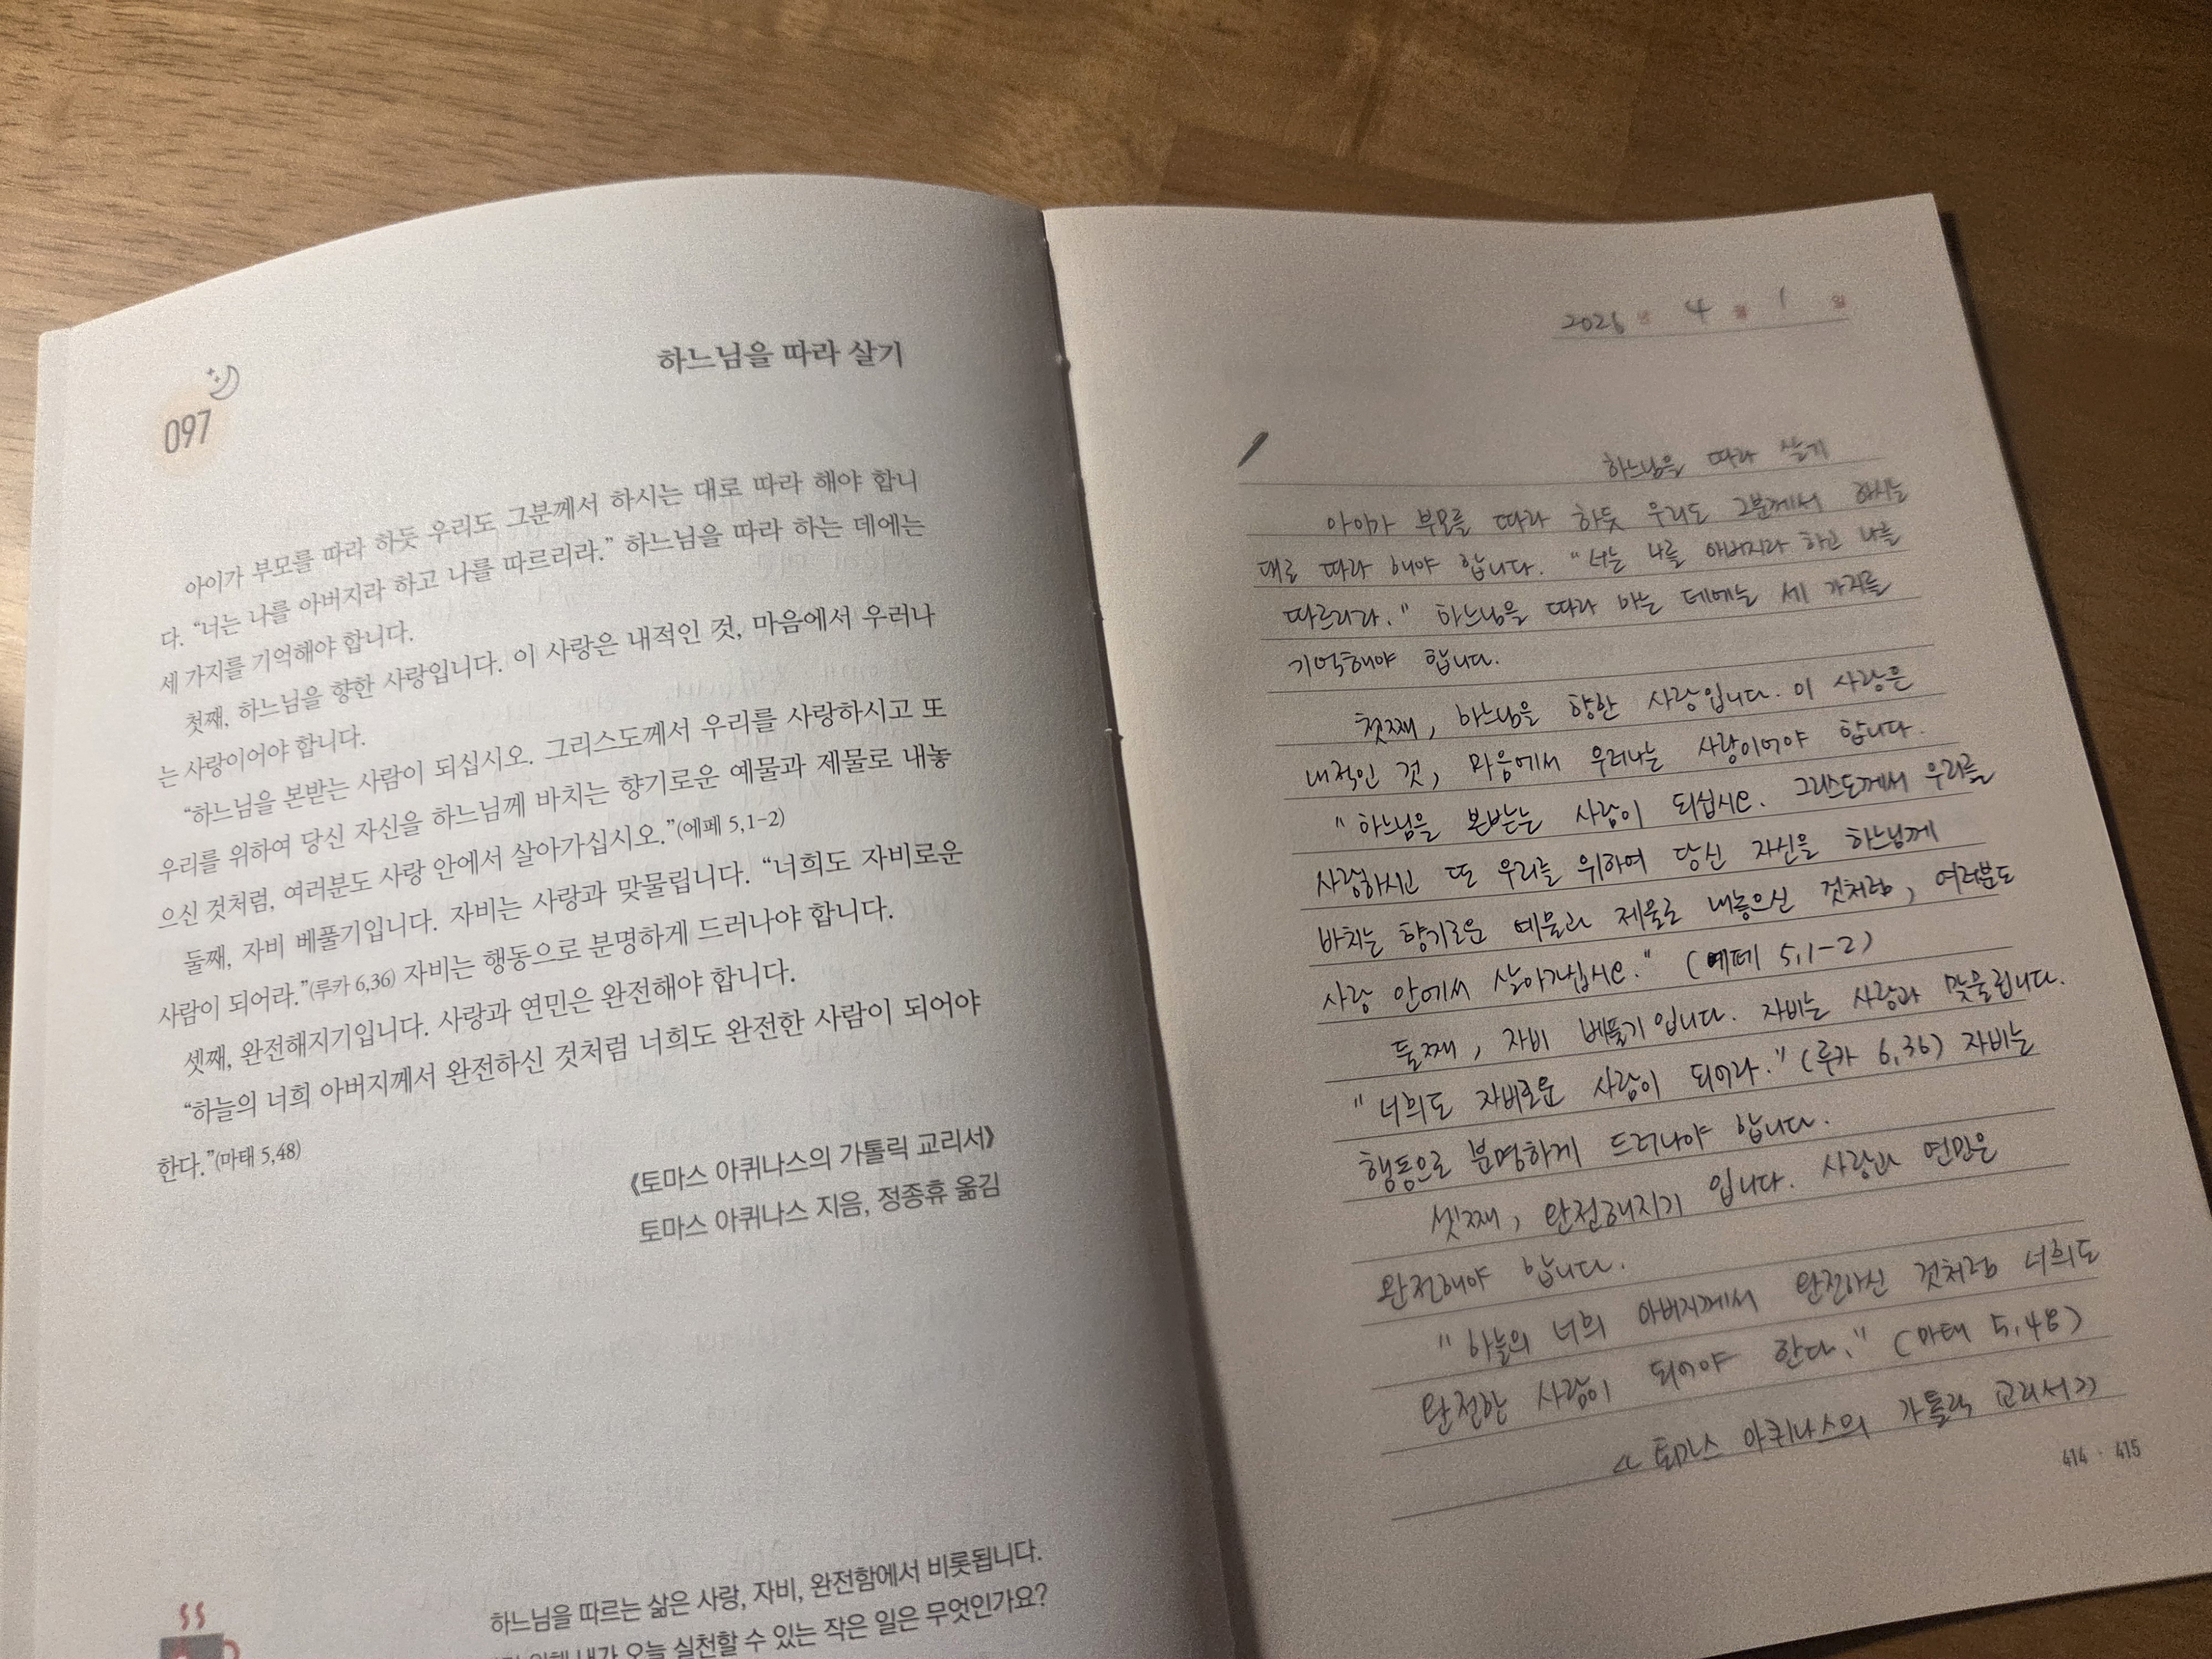 097
하느님을 따라 살기
아이가 부모를 따라 하듯 우리도 그분께서 하시는 대로 따라 해야 합니
다. “너는 나를 아버지라 하고 나를 따르리라.” 하느님을 따라 하는 데에는
세 가지를 기억해야 합니다.
첫째, 하느님을 향한 사랑입니다. 이 사랑은 내적인 것, 마음에서 우러나
는 사랑이어야 합니다.
“하느님을 본받는 사람이 되십시오. 그리스도께서 우리를 사랑하시고 또
우리를 위하여 당신 자신을 하느님께 바치는 향기로운 예물과 제물로 내놓
으신 것처럼, 여러분도 사랑 안에서 살아가십시오.”(에페 5,1-2)
둘째, 자비 베풀기입니다. 자비는 사랑과 맞물립니다. “너희도 자비로운
사람이 되어라.”(루카 6,36) 자비는 행동으로 분명하게 드러나야 합니다.
셋째, 완전해지기입니다. 사랑과 연민은 완전해야 합니다.
“하늘의 너희 아버지께서 완전하신 것처럼 너희도 완전한 사람이 되어야
한다.”(마태 5,48)
《토마스 아퀴나스의 가톨릭 교리서》
토마스 아퀴나스 지음, 정종휴 옮김
하느님을 따르는 삶은 사랑, 자비, 완전함에서 비롯됩니다.
내가 오늘 실천할 수 있는 작은 일은 무엇인가요?
2026년 4월 1일
하느님을 따라 살기
아이가 부모를 따라 하듯 우리도 그분께서 하시는
대로 따라 해야 합니다. "너는 나를 아버지라 하고 나를
따르리라." 하느님을 따라 하는 데에는 세 가지를
기억해야 합니다.
첫째, 하느님을 향한 사랑입니다. 이 사랑은
내적인 것, 마음에서 우러나는 사랑이어야 합니다.
"하느님을 본받는 사람이 되십시오. 그리스도께서 우리를
사랑하시고 또 우리를 위하여 당신 자신을 하느님께
바치는 향기로운 예물과 제물로 내놓으신 것처럼, 여러분도
사랑 안에서 살아가십시오." (에페 5,1-2)
둘째, 자비 베풀기입니다. 자비는 사랑과 맞물립니다.
"너희도 자비로운 사람이 되어라." (루카 6,36) 자비는
행동으로 분명하게 드러나야 합니다.
셋째, 완전해지기 입니다. 사랑과 연민은
완전해야 합니다.
"하늘의 너희 아버지께서 완전하신 것처럼 너희도
완전한 사람이 되어야 한다." (마태 5,48)
<<토마스 아퀴나스의 가톨릭 교리서>>
414 · 415